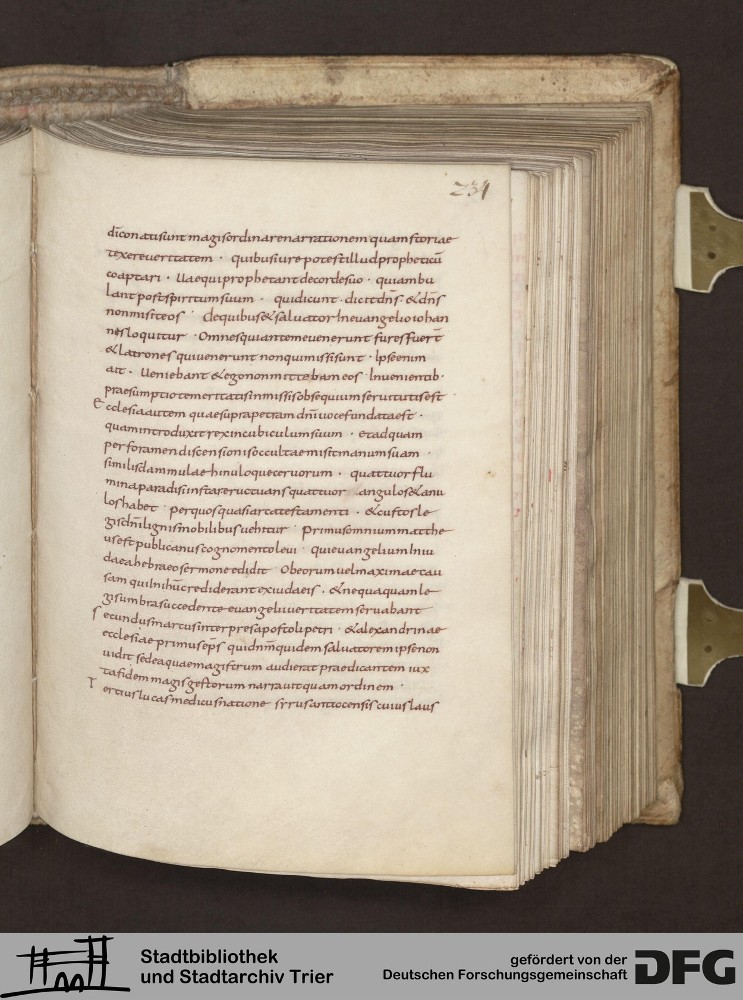 234
diconatisuntmagisordinarenarrationemquamstoriae
texereueritatem · quibusiurepotestilludpropheticū
coaptari · Uaequiprophetantdecordesuo · quiambu
lantpostspiritumsuum · quidicunt · dicitdn̄s · &dn̄s
nonmisiteos · dequibus&saluatorInevangelioiohan
nesloquitur · Omnesquiantemevenerunt furesfuer̄t
&latronesquivenerunt nonquimissisunt · Ipseenim
ait · Ueniebant &egononmittebameos · Inuenientib·
praesumptiotemeritatisinmissisobsequiumseruitutisest
Ecclesiaautem quaesuprapetramdn̄iuocefundataest ·
quamintroduxitrexincubiculumsuum · etadquam
perforamendiscensionisoccultaemisitmanumsuam ·
similisdammulaehinuloqueceruorum · quattuorflu
minaparadisiinstareructuansquattuor angulos&anu
loshabet · perquosquasiarcatestamenti · &custosle
gisdn̄ilignismobilibusuehitur · Primusomniummatthe
usestpublicanuscognomentoleui · quieuangeliumIniu
daeahebraeosermoneedidit · Obeorumuelmaximaecau
sam quiInih̄ucrediderantexiudaeis · &nequaquamle
gisumbrasuccedente euangeliiueritatemseruabant
Secundusmarcusinterpresapostolipetri · &alexandrinae
ecclesiaeprimusep̄s quidnm̄quidemsaluatoremipsenon
uidit sedeaquaemagistrum audieratpraedicantem iux
tafidemmagisgestorum narrauitquamordinem ·
Tertiuslucasmedicusnatione syrusantiocensiscuiuslaus
Stadtbibliothek
und Stadtarchiv Trier
gefördert von der
Deutschen Forschungsgemeinschaft
DFG